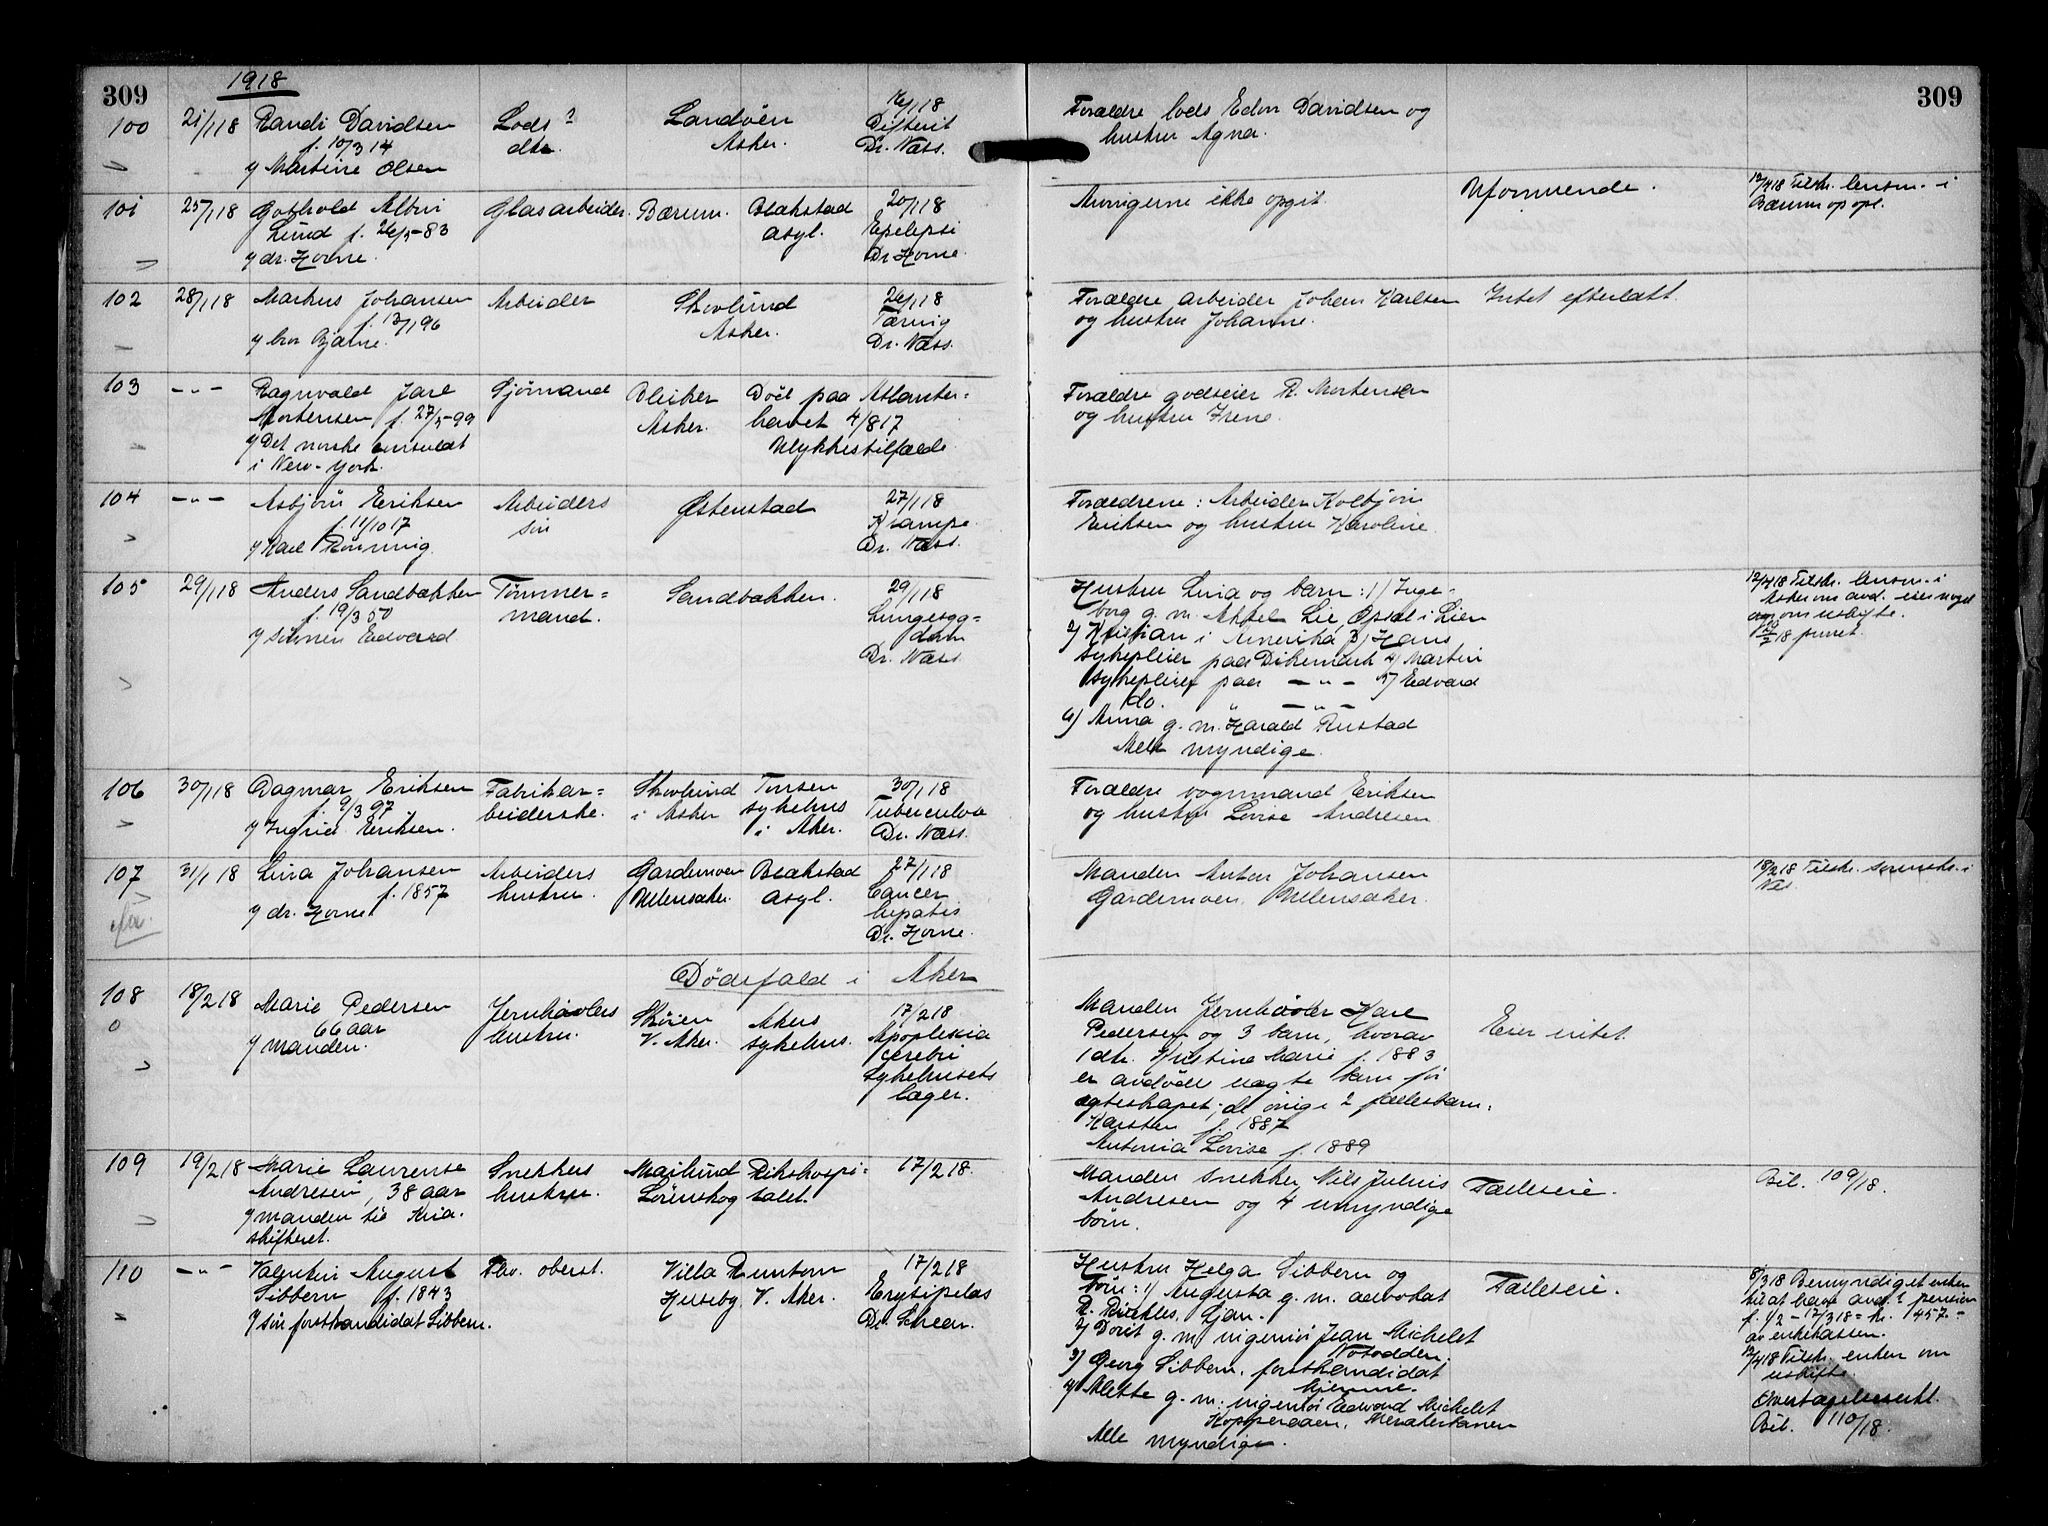 309
1918
309
100
21/1 18
Randi Davidsen
f. 10/3 14
v/ Martine Olsen
Lods ?
dtr.
Landöen
Asker.
16/1 18
Difterit
Dr. Næss.
Forældre lods Edon Davidsen og
hustru Agna.
101
25/1 18
Gothold Albin
Lund f. 26/5-83
v/ dr. Horne.
Glasarbeider.
Bærum.
Blakstad
asyl.
20/1 18
Epelepsi
Dr. Horne.
Arvingerne ikke opgit.
Uformuende.
12/4 18 Tilskr. lensm. i
Bærum op opl.
102
28/1 18
Markus Johansen
f. 13/1 96
v/ bror Bjarne.
Arbeider
Skovlund
Asker.
26/1 18
Tæring
Dr. Næss.
Forældre arbeider Johan Karlsen
og hustru Johanne.
Intet efterlatt.
103
— " —
Ragnvald Jarl
Mortensen f. 27/5-99
v/ Det norske consulat
i New-York.
Sjömand
Bleiker
Asker.
Död paa Atlanter-
havet 4/8 17
Ulykkestilfælde
Forældre godseier R. Mortensen
og hustru Irene.
104
— " —
Asbjörn Eriksen
f. 11/10 17
v/ Karl Rönning.
Arbeiders
sön
Østenstad
27/1 18
Krampe
Dr. Næss.
Forældrene: Arbeider Kolbjörn
Eriksen og hustru Karoline.
105
29/1 18
Anders Sandbakken
f. 19/3 50
v/ sönnen Edvard
Tømmer-
mand.
Sandbakken.
29/1 18
Lungesyg-
dom
Dr. Næss
Hustru Lina og barn: 1/ Inge-
borg g. m. Aksel Lie, Opsal i Lier
2/ Kristian i Amerika 3/ Hans
sykepleier paa Dikemark 4/ Martin
sykepleier paa — " — 5/ Edvard
do. " — " —
6/ Anna g. m. Harald Rustad
Alle myndige.
12/4 18 Tilskr. lensm. i
Asker om avd. eier noget
og om uskifte.
18 purret.
106
30/1 18
Dagmar Eriksen
f. 9/3 97.
v/ Ingrid Eriksen.
Fabrikar-
beiderske.
Skovlund
i Asker
Tonsen
sykehus
i Aker.
30/1 18
Tuberculose
Dr. Næss.
Forældre vognmand Eriksen
og hustru Lovise Andresen
107
31/1 18
Lina Johansen
f. 1857
v/ dr. Horne
Arbeiders
hustru.
Gardermoen
Ullensaker.
Blakstad
asyl.
27/1 18
Cancer
hepatis
Dr. Horne.
Manden Anton Johansen
Gardermoen, Ullensaker.
18/2 18 Tilskr. sorenskr. i
Nes.
Dödsfald i Aker
108
18/2 18
Marie Pedersen
66 aar
v/ manden.
Jernhövlers
hustru.
Sköien
V. Aker.
Akers
sykehus.
17/2 18
Apoplexia
cerebri
Sykehusets
læger.
Manden Jernhövler Karl
Pedersen og 3 barn, hvorav
1 dtr. Kristine Marie f. 1883
er avdödes uægte barn för
egteskapet; de övrige 2 fællesbarn:
Karsten f. 1887
Antonia Lovise f. 1889
Eier intet.
109
19/2 18
Marie Laurense
Andresen, 38 aar
v/ manden til Kria.
skifteret.
Snekkers
hustru.
Majlund
Lörenskog
Rikshospi-
talet.
17/2 18.
Manden snekker Nils Julius
Andresen og 4 umyndige
börn.
Fælleseie.
Bil. 109/18.
110
— " —
Valentin August
Sibbern f. 1843
v/ sön forstkandidat Sibbern.
oberst.
Villa
Huseby V. Aker.
17/2 18
Erysipelas
Dr. Scheen.
Hustru Helga Sibbern og
börn: 1/ Augusta g. m. advokat
R. Ljan.
2/ Dorit g. m. ingeniör Jean Michelet
Notodden.
3/ Georg Sibbern, forstkandidat
hjemme.
4/ Alette g. m. ingeniör Edvard Michelet
Alle myndige.
Fælleseie.
8/3 18 Bemyndiget enken
til at hæve avd.s pension
f. 1/2 - 17/3 18 = kr. 457.-
av enkekassen.
12/4 18 Tilskr. enken om
uskifte.
Bil. 110/18.